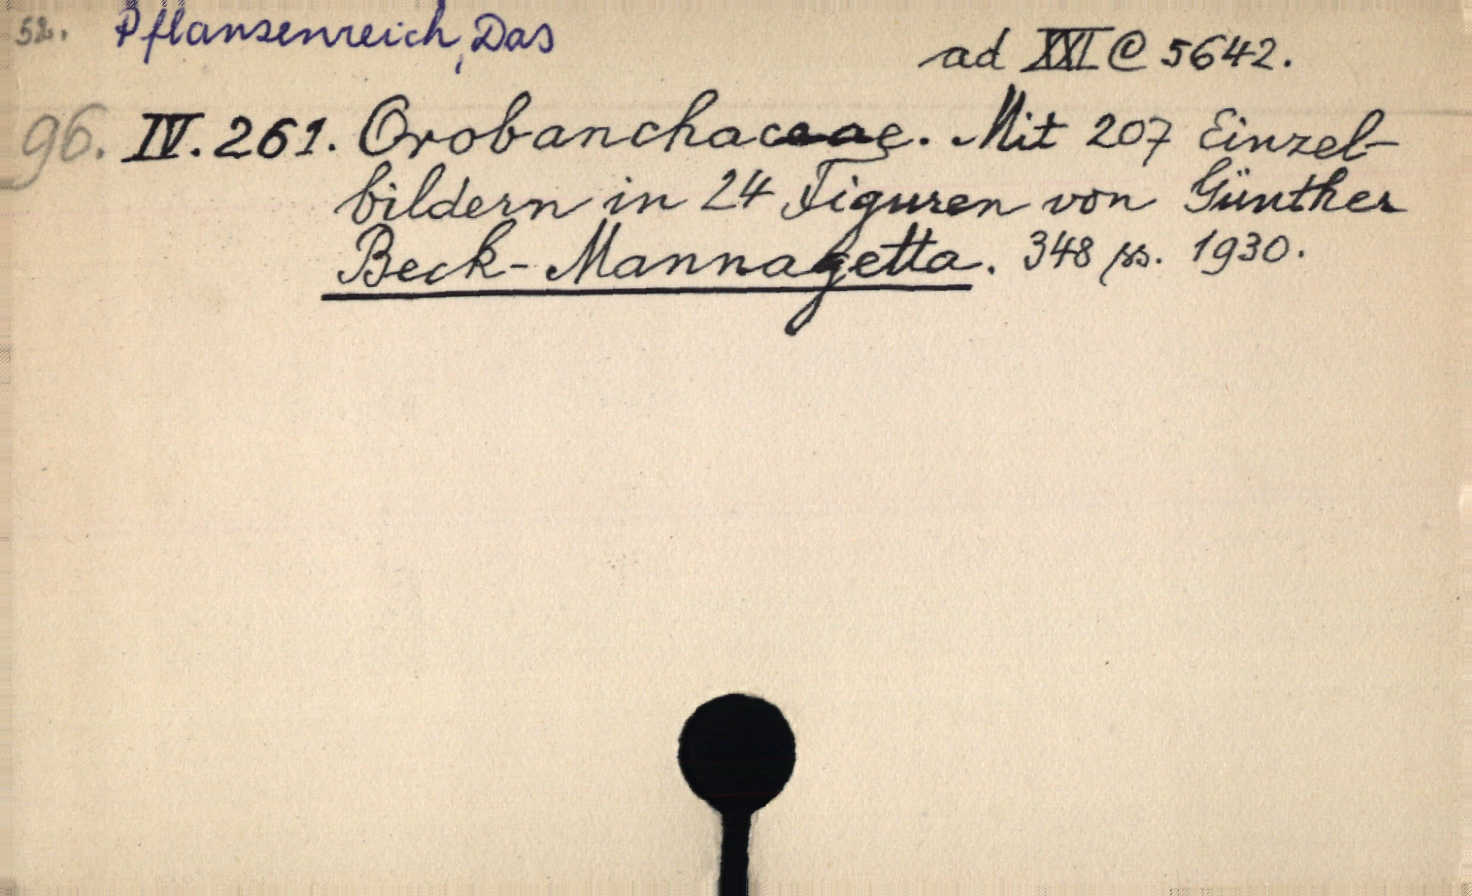 52. Pflanzenreich, Das
ad XXI C 5642.
96. IV. 261. Orobanchaceae. Mit 207 Einzel-
bildern in 24 Figuren von Günther
Beck-Mannagetta. 348 ss. 1930.